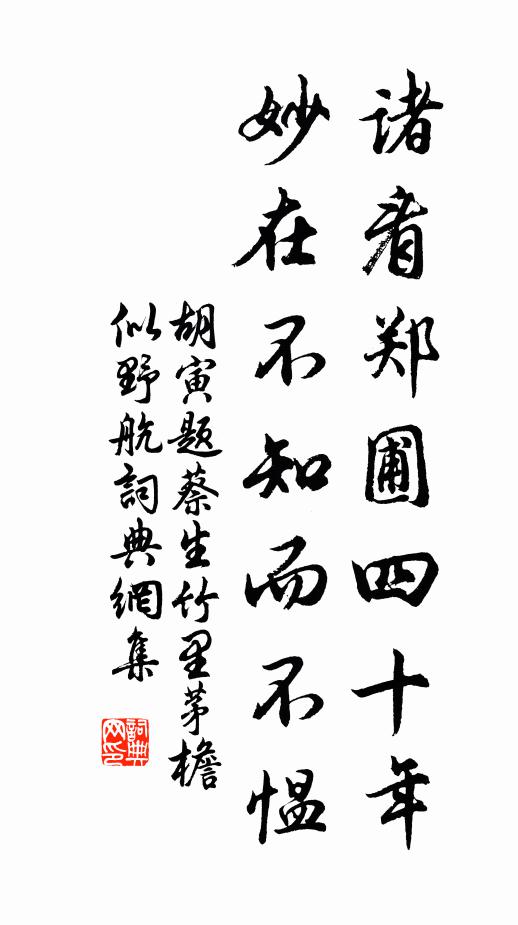 诸看郑圃四十年
妙在不知而不愠
胡寅题蔡生竹里茅檐
似野航詞典網集
詞典网印